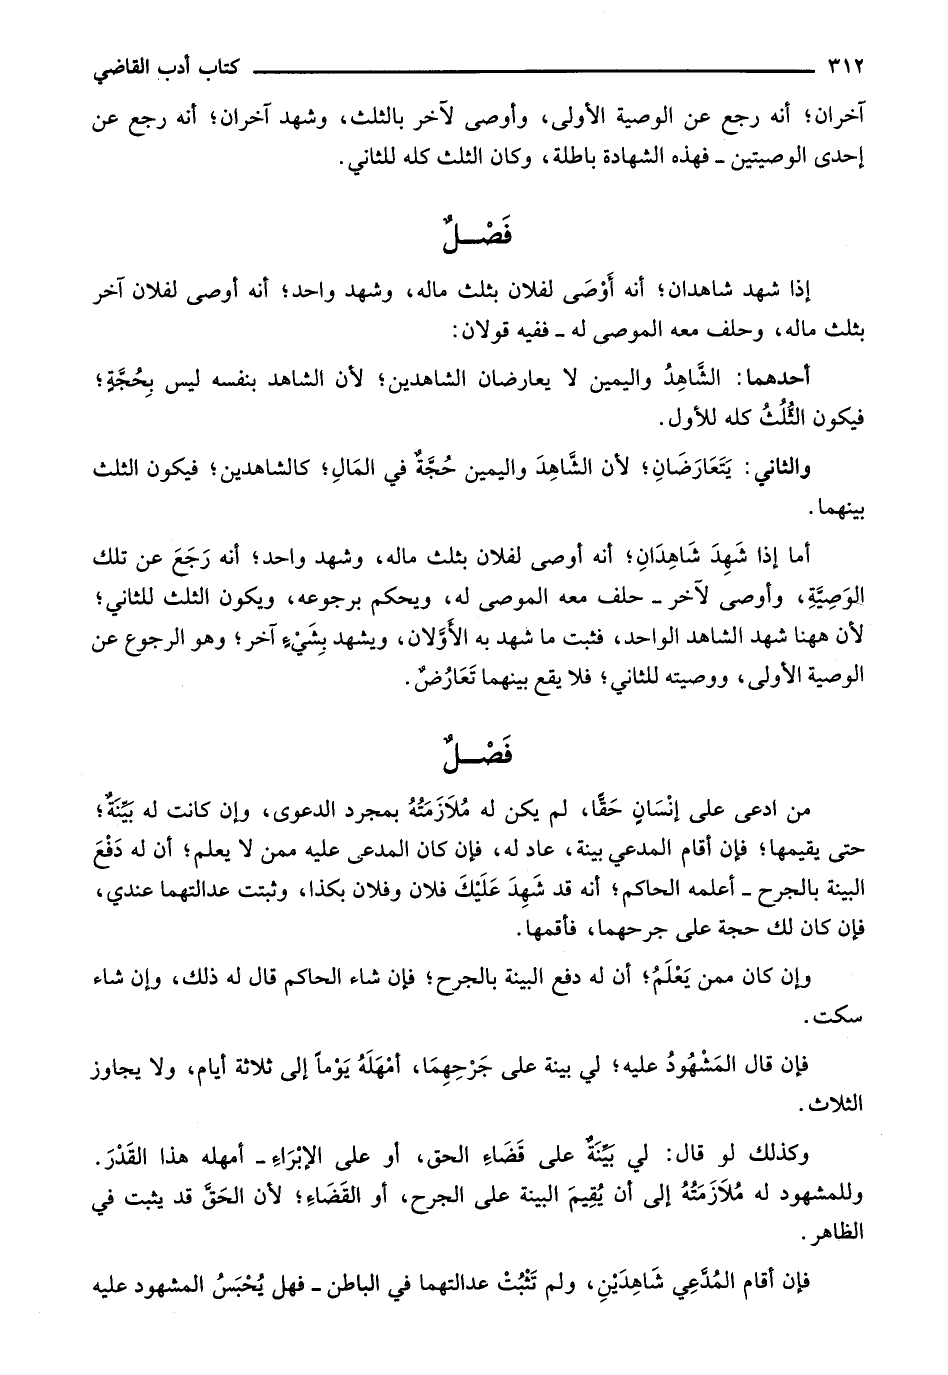 ٣١٢ ـــــــــــــــــــــــــــــــــــــــــــــــــ كتاب أدب القاضي
آخران؛ أنه رجع عن الوصية الأولى، وأوصى لآخر بالثلث، وشهد آخران؛ أنه رجع عن
إحدى الوصيتين ـ فهذه الشهادة باطلة، وكان الثلث كله للثاني.
فَصْـــلٌ
إذا شهد شاهدان؛ أنه أَوْصَى لفلان بثلث ماله، وشهد واحد؛ أنه أوصى لفلان آخر
بثلث ماله، وحلف معه الموصى له ـ ففيه قولان:
أحدهما: الشَّاهِدُ واليمين لا يعارضان الشاهدين؛ لأن الشاهد بنفسه ليس بِحُجَّةٍ؛
فيكون الثُّلُثُ كله للأول.
والثاني: يَتَعَارَضَانِ؛ لأن الشَّاهِدَ واليمين حُجَّةٌ في المَالِ؛ كالشاهدين؛ فيكون الثلث
بينهما.
أما إذا شَهِدَ شَاهِدَانِ؛ أنه أوصى لفلان بثلث ماله، وشهد واحد؛ أنه رَجَعَ عن تلك
الوَصِيَّةِ، وأوصى لآخر ـ حلف معه الموصى له، ويحكم برجوعه، ويكون الثلث للثاني؛
لأن ههنا شهد الشاهد الواحد، فثبت ما شهد به الأَوَّلان، ويشهد بِشَيْءٍ آخر؛ وهو الرجوع عن
الوصية الأولى، ووصيته للثاني؛ فلا يقع بينهما تَعَارُضٌ.
فَصْـــلٌ
من ادعى على إنْسَانٍ حَقًّا، لم يكن له مُلاَزَمَتُهُ بمجرد الدعوى، وإن كانت له بَيِّنَةٌ؛
حتى يقيمها؛ فإن أقام المدعي بينة، عاد له، فإن كان المدعى عليه ممن لا يعلم؛ أن له دَفْعَ
البينة بالجرح ـ أعلمه الحاكم؛ أنه قد شَهِدَ عَلَيْكَ فلان وفلان بكذا، وثبتت عدالتهما عندي،
فإن كان لك حجة على جرحهما، فأقمها.
وإن كان ممن يَعْلَمُ؛ أن له دفع البينة بالجرح؛ فإن شاء الحاكم قال له ذلك، وإن شاء
سكت.
فإن قال المَشْهُودُ عليه؛ لي بينة على جَرْحِهِمَا، أمْهَلَهُ يَوْماً إلى ثلاثة أيام، ولا يجاوز
الثلاث.
وكذلك لو قال: لي بَيِّنَةٌ على قَضَاءِ الحق، أو على الإبْرَاءِ ـ أمهله هذا القَدْرَ.
وللمشهود له مُلاَزَمَتُهُ إلى أن يُقِيمَ البينة على الجرح، أو القَضَاءِ؛ لأن الحَقَّ قد يثبت في
الظاهر.
فإن أقام المُدَّعِي شَاهِدَيْنِ، ولم تَثْبُتْ عدالتهما في الباطن ـ فهل يُحْبَسُ المشهود عليه